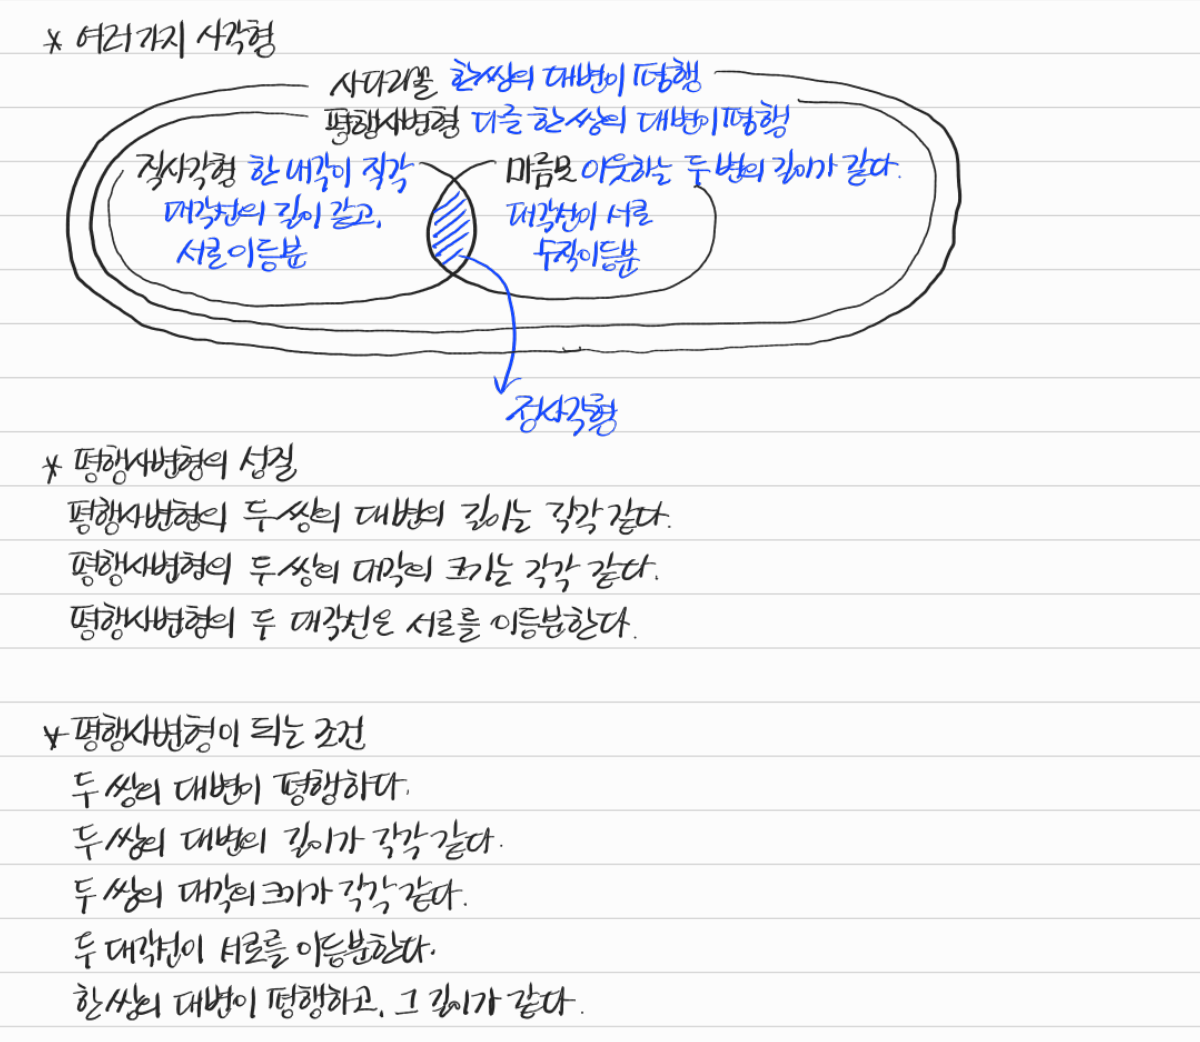 * 여러가지 사각형
사다리꼴 한쌍의 대변이 평행
평행사변형 다른 한 쌍의 대변이 평행
직사각형 한 내각이 직각
대각선의 길이 같고,
서로 이등분
마름모 이웃하는 두 변의 길이가 같다.
대각선이 서로
수직이등분
정사각형
* 평행사변형의 성질
평행사변형의 두 쌍의 대변의 길이는 각각 같다.
평행사변형의 두 쌍의 대각의 크기는 각각 같다.
평행사변형의 두 대각선은 서로를 이등분한다.
* 평행사변형이 되는 조건
두 쌍의 대변이 평행하다.
두 쌍의 대변의 길이가 각각 같다.
두 쌍의 대각의 크기가 각각 같다.
두 대각선이 서로를 이등분한다.
한 쌍의 대변이 평행하고, 그 길이가 같다.